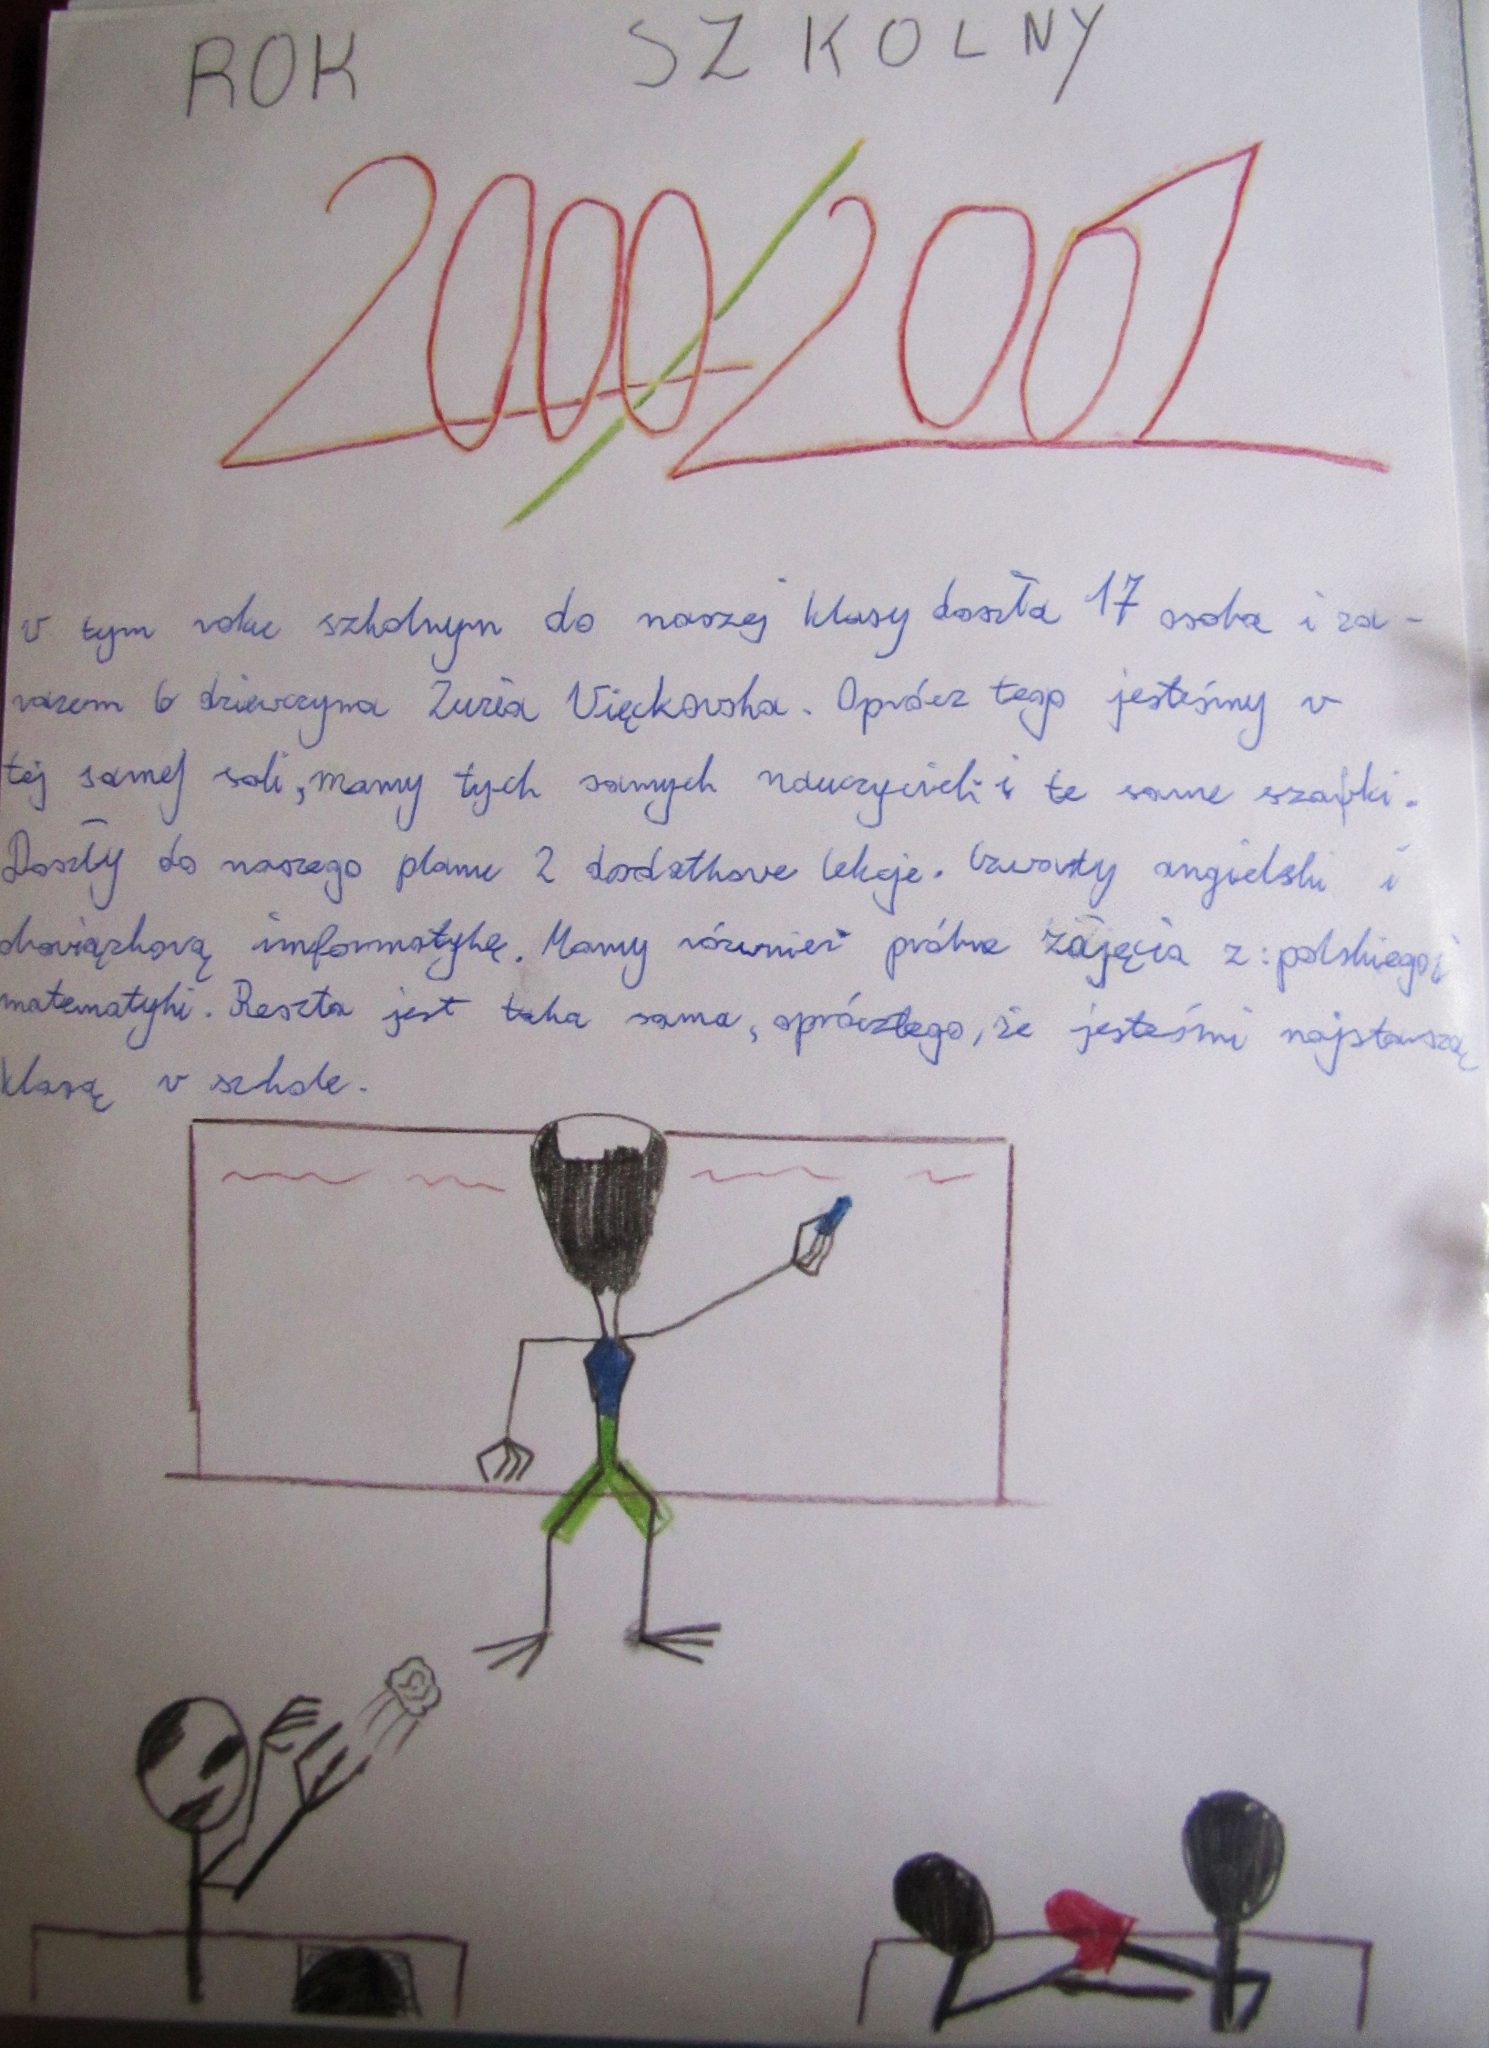 ROK SZKOLNY
2000/2001
W tym roku szkolnym do naszej klasy doszła 17 osoba i za-
razem 6 dziewczyna Zuzia Więckowska. Oprócz tego jesteśmy w
tej samej sali, mamy tych samych nauczycieli i te same szafki.
Doszły do naszego planu 2 dodatkowe lekcje. Czwarty angielski i
obowiązkową informatykę. Mamy również próbne zajęcia z: polskiego i
matematyki. Reszta jest taka sama, oprócztego, że jesteśmi najstarszą
klasą w szkole.